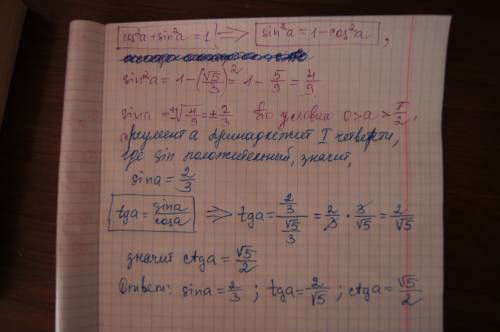 cos²a + sin²a = 1 ⇒ sin²a = 1 - cos²a,
sin²a = 1 - (√5/3)² = 1 - 5/9 = 4/9
sina = ±√4/9 = ±2/3 По условию 0 > a > π/2,
аргумент а принадлежит I четверти,
где sin положительный, значит,
sina = 2/3
tga = sina/cosa ⇒ tga = (2/3)/(√5/3) = 2/3 · 3/√5 = 2/√5
значит ctga = √5/2
Ответ: sina = 2/3 ; tga = 2/√5 ; ctga = √5/2